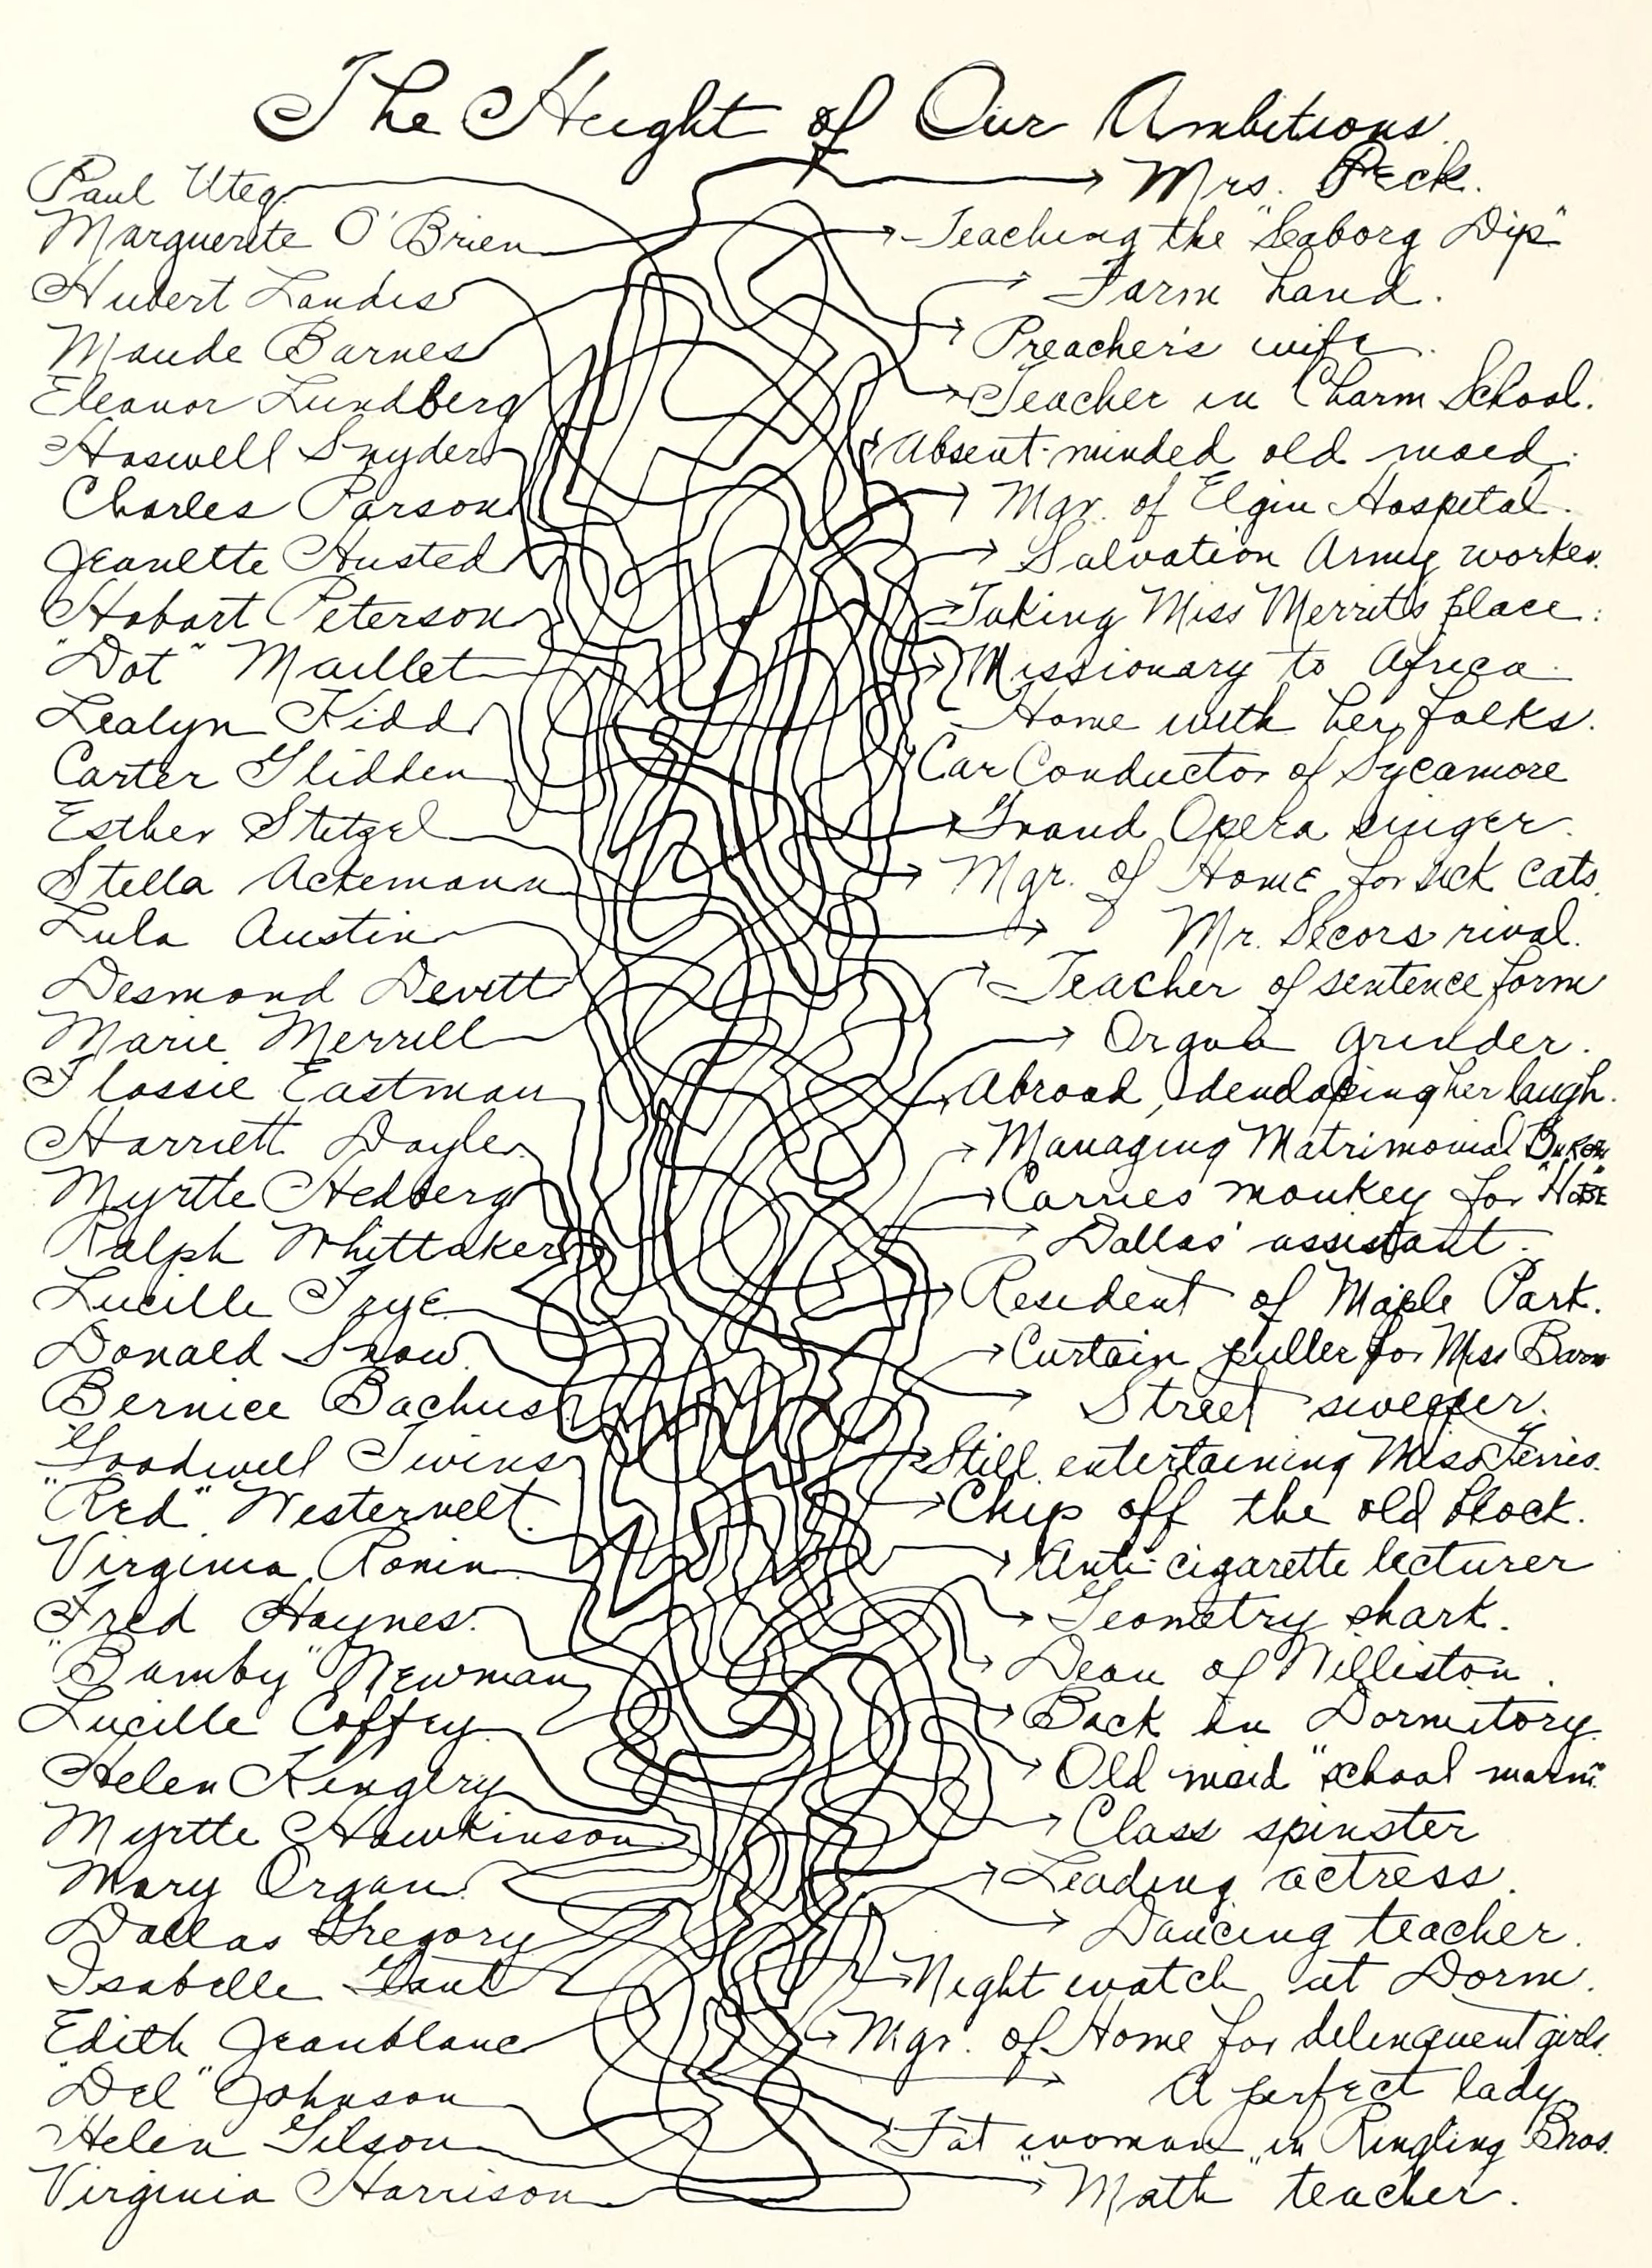 The Height of Our Ambitions.
Paul Uteg
Mrs. Peck.
Marguerite O'Brien
Teaching the "Seaborg Dip"
Hubert Landis
Farm hand.
Maude Barnes
Preacher's wife.
Eleanor Lundberg
Teacher in Charm School.
Haswell Snyder
Absent-minded old maid.
Charles Parson
Mgr. of Elgin Hospital.
Jeanette Husted
Salvation Army worker.
Hobart Peterson
Taking Miss Merritt's place.
"Dot" Maillet
Missionary to Africa.
Lealyn Kidd
Home with her folks.
Carter Glidden
Car Conductor of Sycamore
Esther Stetzel
Grand Opera singer.
Stella Ackemann
Mgr. of Home for sick cats.
Lula Austin
Mr. Secors rival.
Desmond Devitt
Teacher of sentence form
Marie Merrill
Organ grinder.
Flossie Eastman
Abroad, developing her laugh.
Harriett Doyle
Managing Matrimonial
Myrtle Hedberg
Carries monkey for "Hobe"
Ralph Whittaker
Dallas' assistant.
Lucille Frye
Resident of Maple Park.
Donald Snow
Curtain puller for Miss Barn
Bernice Bachus
Street sweeper.
Goodwell Twins
Still entertaining Miss Ferris.
"Red" Westervelt.
Chip off the old block.
Virginia Ronin
Anti-cigarette lecturer
Fred Haynes.
Geometry shark.
"Bamby" Newman
Dean of Williston.
Lucille Coffey
Back in Dormitory.
Helen Kingery
Old maid "school marm".
Myrtle Hawkinson
Class spinster
Mary Organ.
Leading actress.
Dallas Gregory
Dancing teacher.
Isabelle Gant
Night watch at Dorm.
Edith Jeanblanc
Mgr. of Home for delinquent girls.
"Del" Johnson
A perfect lady
Helen Gilson
Fat "woman" in Ringling Bros.
Virginia Harrison
Math teacher.